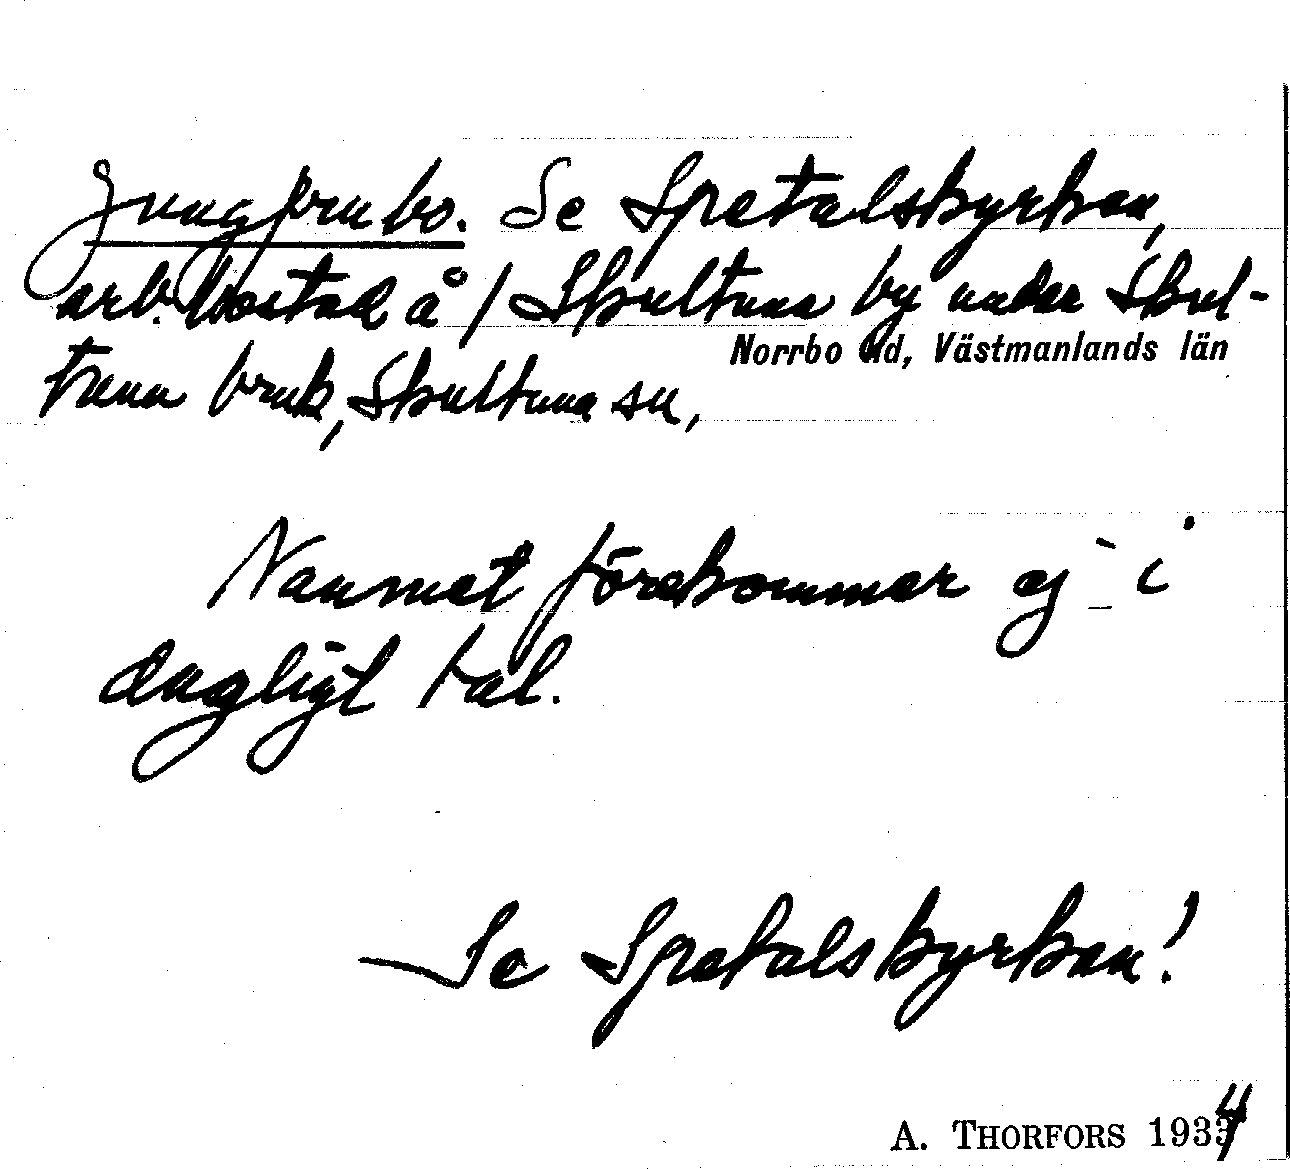 Jungfrubo. Se Spetalskyrkan,
arb.bostad å / Skultuna by under Skul-
Norrbo hd, Västmanlands län
tuna bruk, Skultuna sn,
Namnet förekommer ej i
dagligt tal.
Se Spetalskyrkan!
A. THORFORS 1934